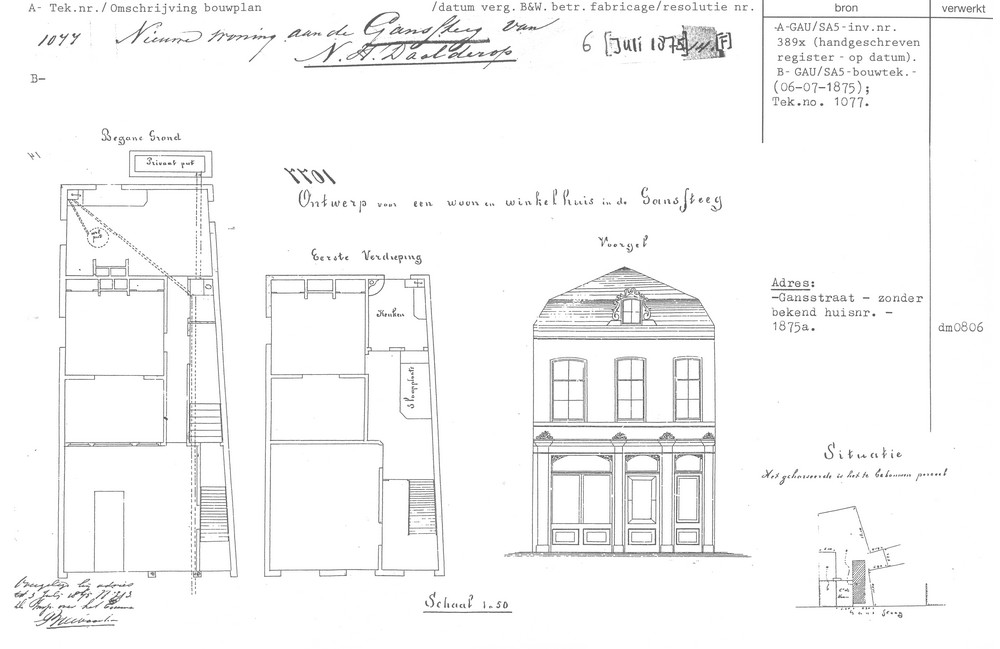 A- Tek.nr./Omschrijving bouwplan
/datum verg. B&W. betr. fabricage/resolutie nr.
bron
verwerkt
1077 Nieuwe woning aan de Ganssteeg van
N. H. Daalderop
6 [Juli 1875]
[F]
-A-GAU/SA5-inv.nr.
389x (handgeschreven
register - op datum).
B- GAU/SA5-bouwtek.-
(06-07-1875);
Tek.no. 1077.
B-
Begane Grond
Privaat put
1077
Ontwerp voor een woon en winkelhuis in de Ganssteeg
Eerste Verdieping
Voorgel
Keuken
Slaapplaats
Adres:
-Gansstraat - zonder
bekend huisnr. -
1875a.
dm0806
Situatie
Het gearceerde is het te bebouwen perceel
Schaal 1 à 50